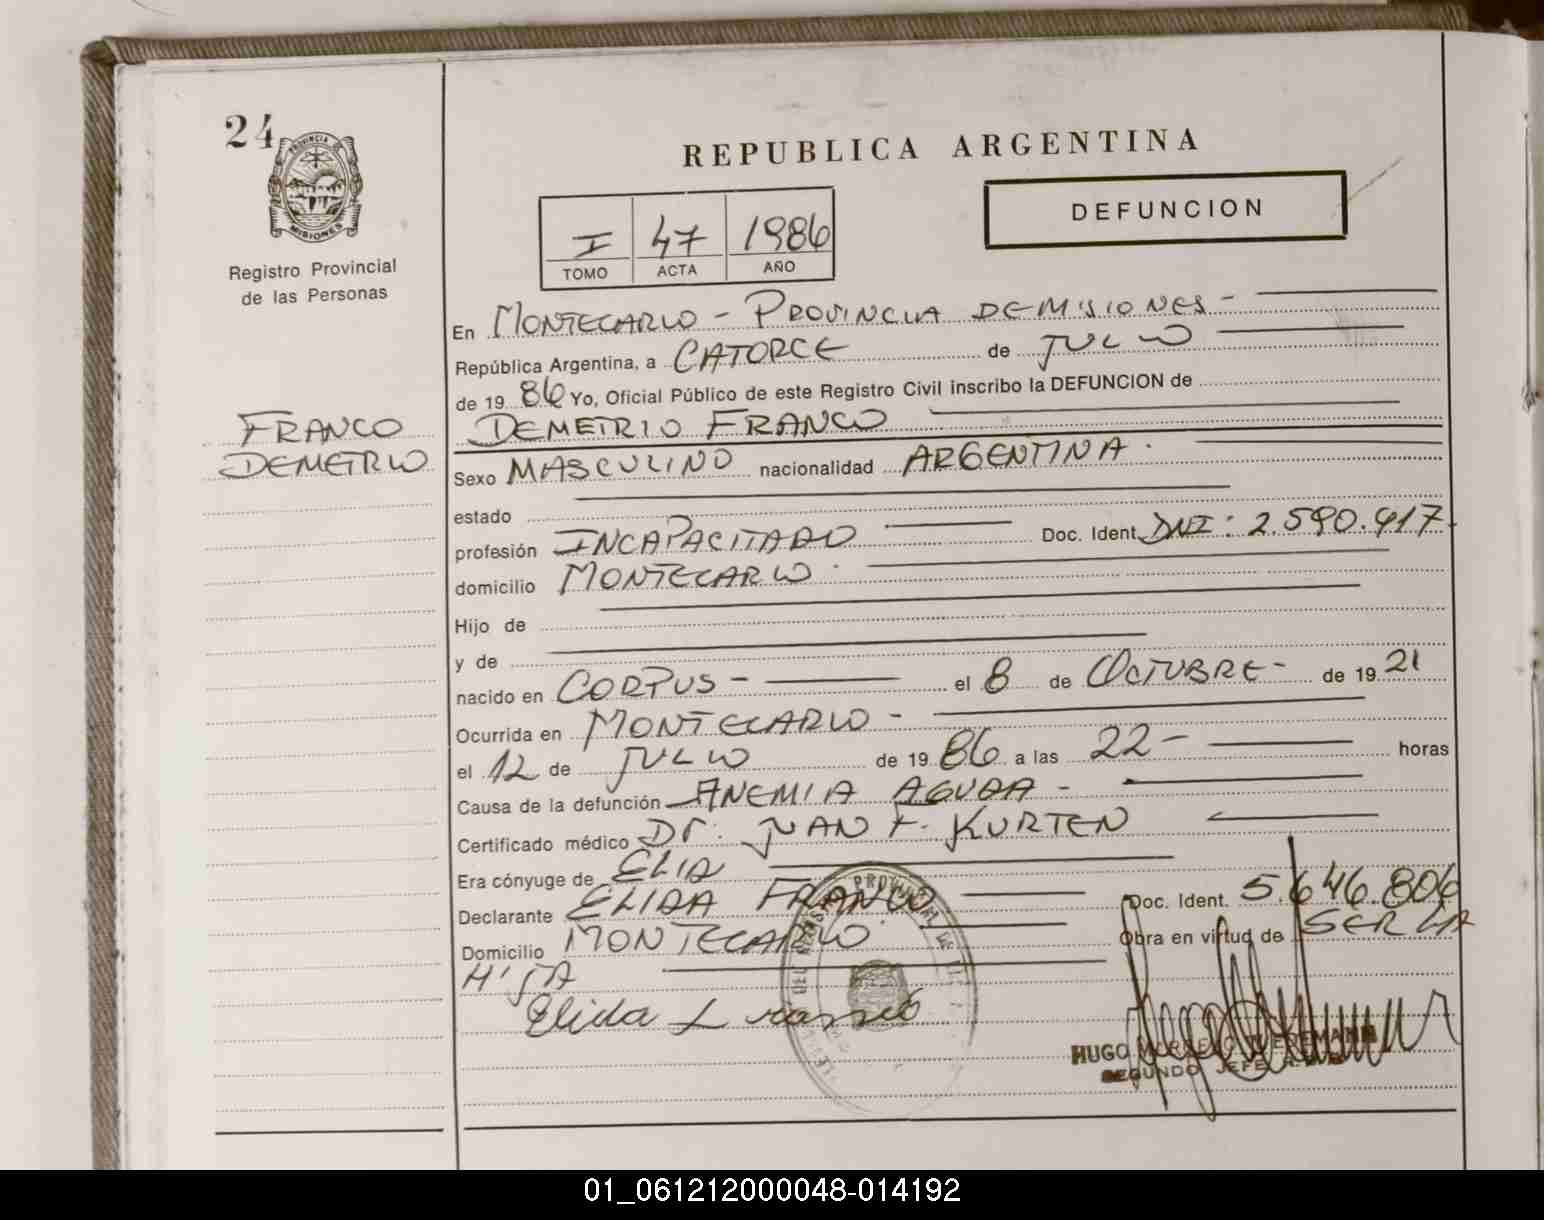 24
PROVINCIA DE
MISIONES
Registro Provincial
de las Personas
FRANCO
DEMETRIO
REPUBLICA ARGENTINA
I 47 1986
TOMO ACTA AÑO
DEFUNCION
En MONTECARLO - PROVINCIA DE MISIONES -
República Argentina, a CATORCE de JULIO
de 19 86 Yo, Oficial Público de este Registro Civil inscribo la DEFUNCION de
DEMETRIO FRANCO
Sexo MASCULINO nacionalidad ARGENTINA.
estado
profesión INCAPACITADO Doc. Ident. DNI: 2.590.917
domicilio MONTECARLO.
Hijo de
y de
nacido en CORPUS - el 8 de OCTUBRE - de 19 21
Ocurrida en MONTECARLO -
el 12 de JULIO de 19 86 a las 22 - horas
Causa de la defunción ANEMIA AGUDA -
Certificado médico Dr. JUAN F. KURTEN
Era cónyuge de ELIA
Declarante ELIDA FRANCO Doc. Ident. 5.646.806
Domicilio MONTECARLO. Obra en virtud de SER LA
HIJA
Elida
HUGO
SEGUNDO JEFE
01_061212000048-014192